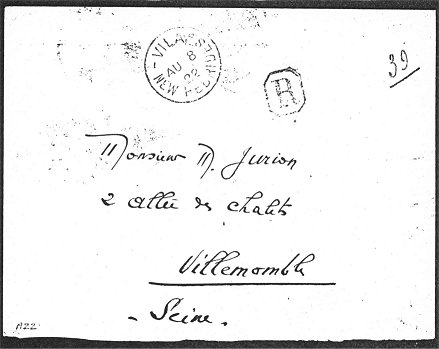 VILA
AU 8
22
NEW HEBRIDES
R
39
Monsieur M. Jurion
2 allée des chalets
Villemomble
- Seine.
A22